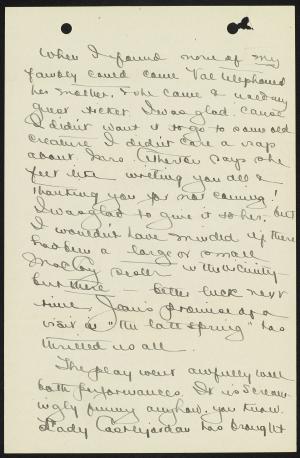 When I found none of my
family could come Val telephoned
her mother. & she came & used my
guest ticket. I was glad. Cause
I didn't want it to go to some old
creature I didn't care a rap
about. Mrs. Atherton says she
felt like writing you all &
thanking you for not coming!
I was glad to give it to her. but
I wouldn't have minded if there
had been a large or small
MacCoy in the vicinity
but there — better luck next
time. Jean's promise of a
visit in "the late spring" has
thrilled us all.
The play went awfully well
both performances. It is scream-
ingly funny anyhow. you know.
Lady Castlejordan has brought